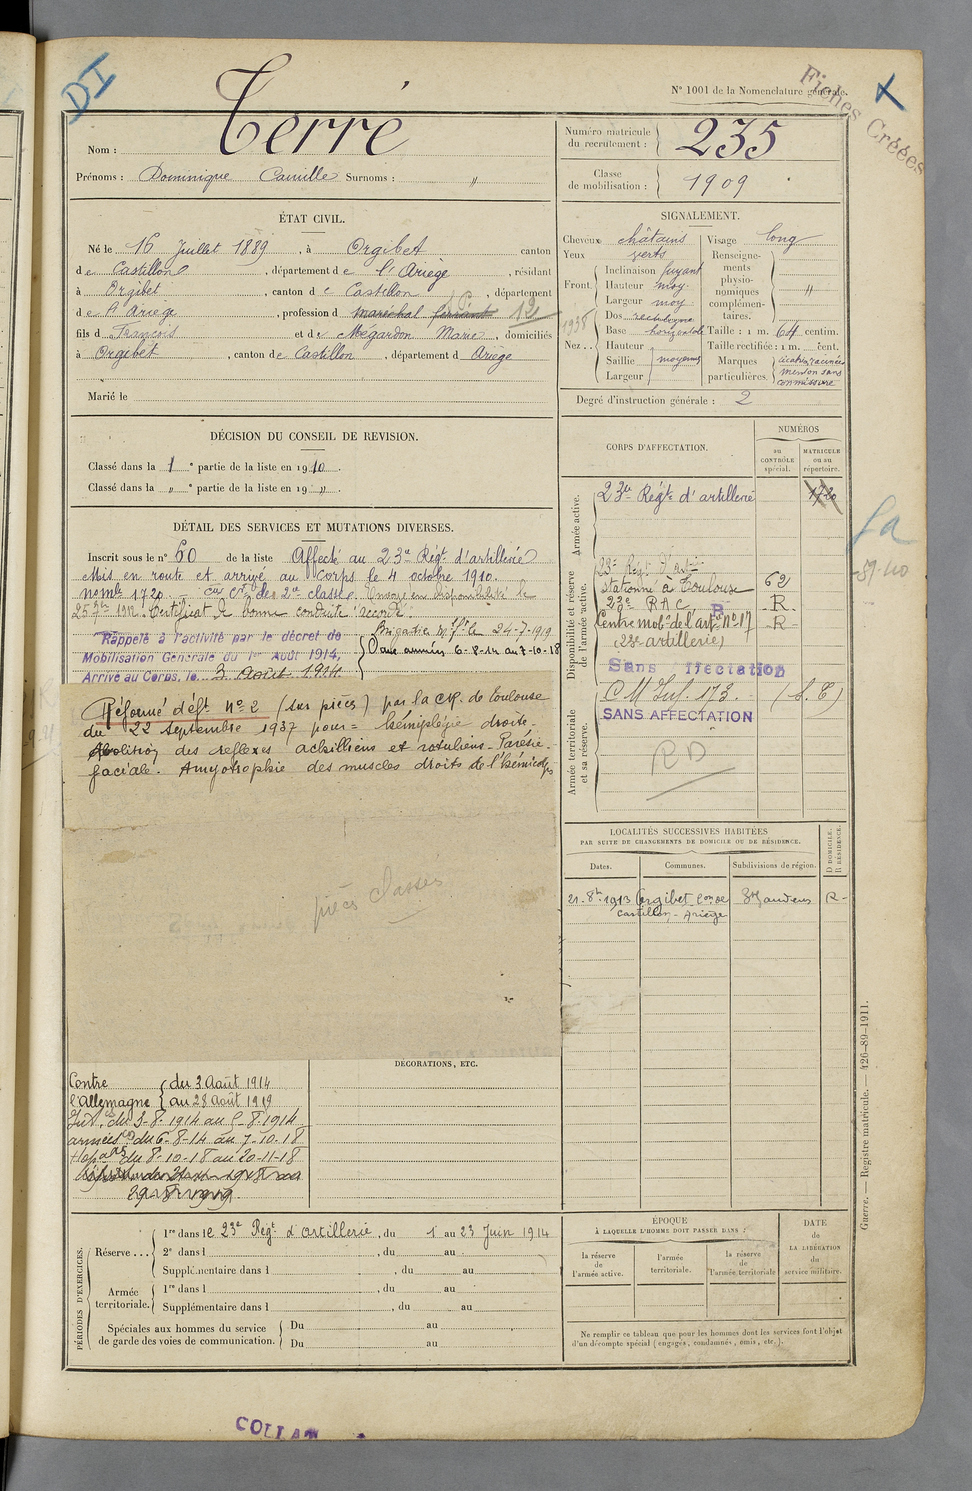 DI
Fiches Créées
N° 1001 de la Nomenclature générale.
Nom : Terré
Prénoms : Dominique Camille Surnoms : "
Numéro matricule du recrutement : 235
Classe de mobilisation : 1909
ÉTAT CIVIL.
Né le 16 Juillet 1889, à Orgibet canton
de Castillon, département de l'Ariège, résidant
à Orgibet, canton de Castillon, département
de l'Ariège, profession d maréchal ferrant 12
fils d François et de Mégardon Marie, domiciliés
à Orgibet, canton de Castillon, département d Ariège
Marié le
SIGNALEMENT.
Cheveux châtains
Yeux verts
Front. Inclinaison fuyant
Hauteur moy.
Largeur moy.
1938
Nez .. Dos rectiligne
Base horizontale
Hauteur
Saillie moyenne
Largeur
Visage long
Renseignements physionomiques complémentaires. "
Taille : 1 m. 64 centim.
Taille rectifiée : 1 m. cent.
Marques particulières.
menton sans
Degré d'instruction générale : 2
DÉCISION DU CONSEIL DE REVISION.
Classé dans la 1e partie de la liste en 1910.
Classé dans la " e partie de la liste en 19 ".
DÉTAIL DES SERVICES ET MUTATIONS DIVERSES.
Inscrit sous le n° 60 de la liste Affecté au 23e Régt. d'artillerie
Mis en route et arrivé au Corps le 4 octobre 1910.
nomb. 1720. cer de 2e classe. Envoyé en disponibilité le
25 7bre 1912. Certificat de bonne conduite accordé.
Rappelé à l'activité par le décret de
Mobilisation Générale du 1er Août 1914,
Arrivé au Corps, le 3 Août 1914
Brigadier le 24-7-1919
Aux armées 6-8-14 au 7-10-18
Réformé déft. n° 2 (sur pièces) par la CR. de Toulouse
du 22 Septembre 1937 pour = hémiplégie droite.
Abolition des réflexes achilliens et rotuliens - Parésie
faciale. Amyotrophie des muscles droits de l'hémicorps
pièces classées
CORPS D'AFFECTATION.
NUMÉROS
au CONTRÔLE spécial.
MATRICULE ou au répertoire.
Armée active.
23e Régt. d'artillerie 1720
Disponibilité et réserve de l'armée active.
23e Régt d'art
Stationné à Toulouse 62
22e RAC - R -
Centre mobe de l'artie n° 17 - R -
(23e artillerie)
R
Sans ffectation
C M Inf. 173. (S.E)
SANS AFFECTATION
Armée territoriale et sa réserve.
RD
LOCALITÉS SUCCESSIVES HABITÉES
PAR SUITE DE CHANGEMENTS DE DOMICILE OU DE RÉSIDENCE.
Dates.
Communes.
Subdivisions de région.
D DOMICILE.
R RÉSIDENCE.
21. 8bre 1913 Orgibet Con de St Gaudens R -
Castillon - Ariège
DÉCORATIONS, ETC.
Contre l'Allemagne
du 3 Août 1914
au 28 Août 1919
Int. du 3-8-1914 au 5-8-1914
armées du 6-8-14 au 7-10-18
Hopal du 8-10-18 au 20-11-18
PÉRIODES D'EXERCICES.
Réserve ...
1re dans le 23e Régt. d'artillerie, du 1 au 23 Juin 1914
2e dans l , du au
Supplémentaire dans l , du au
Armée territoriale.
1re dans l , du au
Supplémentaire dans l , du au
Spéciales aux hommes du service de garde des voies de communication.
Du au
Du au
ÉPOQUE
À LAQUELLE L'HOMME DOIT PASSER DANS :
la réserve de l'armée active.
l'armée territoriale.
la réserve de l'armée territoriale
DATE DE LA LIBÉRATION du service militaire.
Ne remplir ce tableau que pour les hommes dont les services font l'objet
d'un décompte spécial (engagés, condamnés, omis, etc.).
Guerre. — Registre matricule. — 426-89-1911.